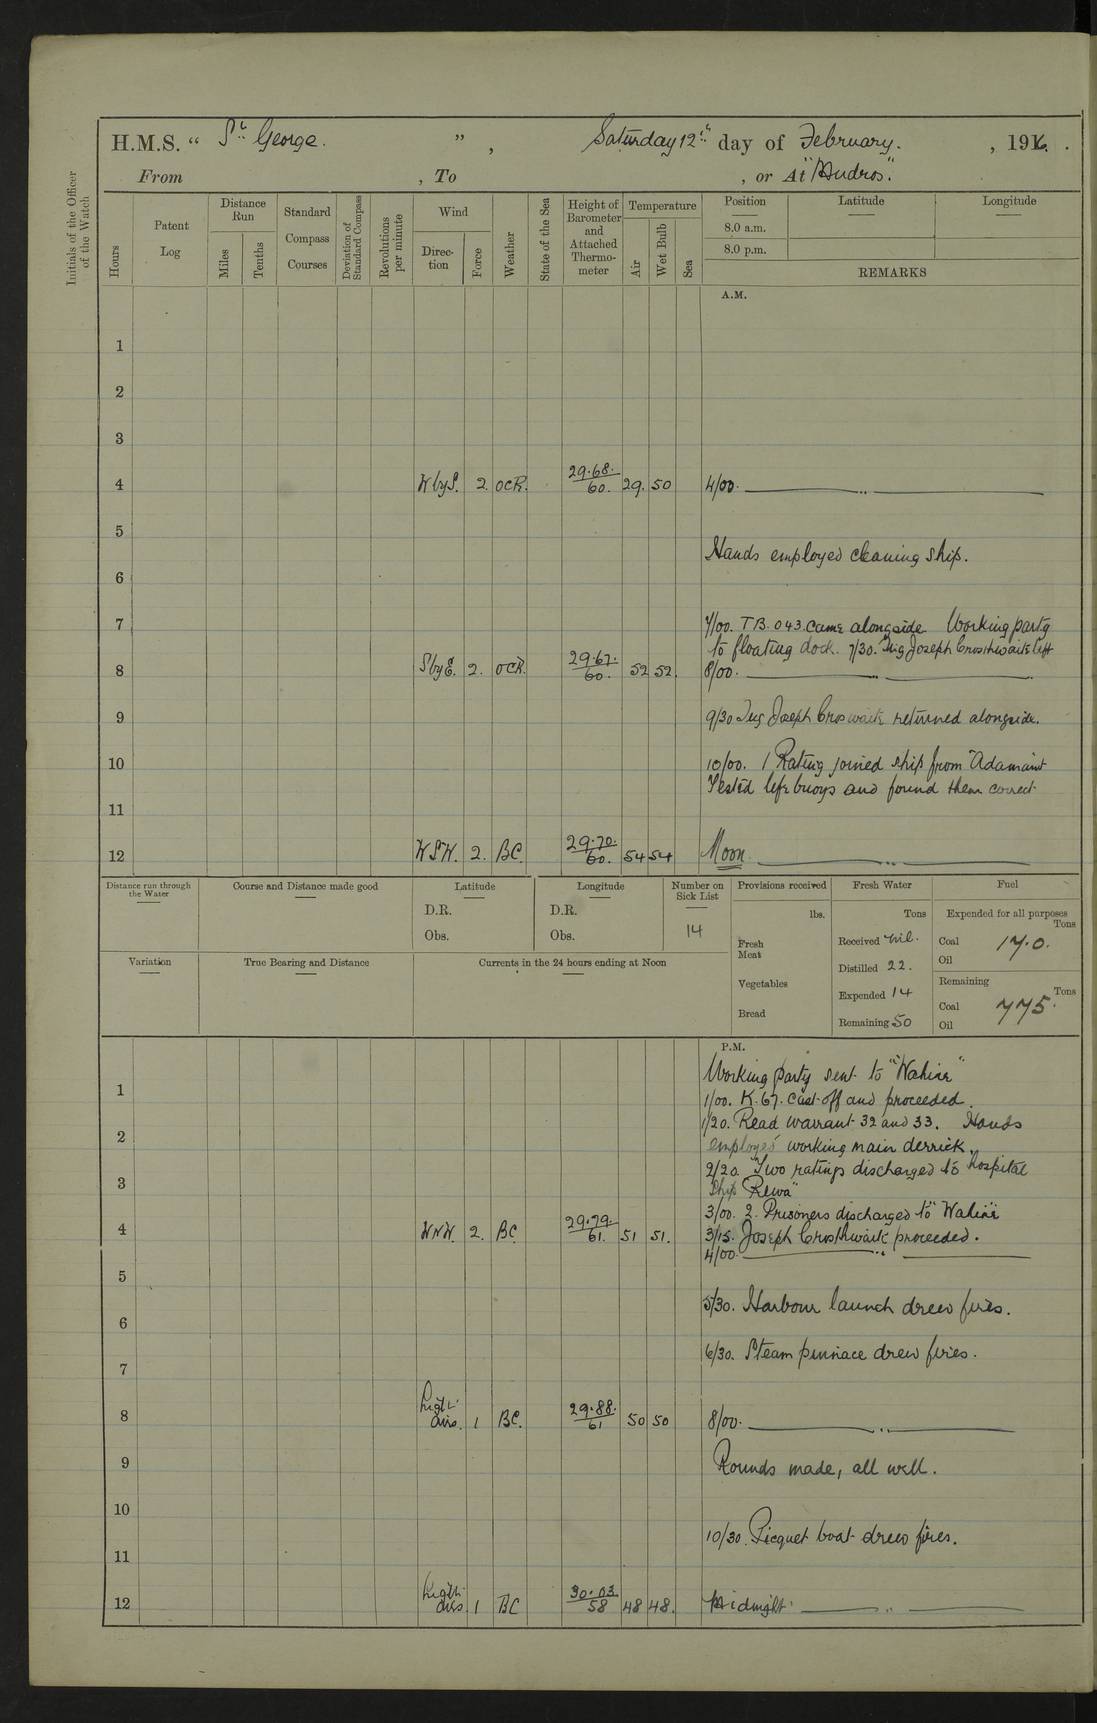 H.M.S. “ St George. ” , Saturday 12th day of February. , 1916.
From , To , or At "Mudros."
Initials of the Officer of the Watch
Hours
Patent Log
Distance Run
Miles
Tenths
Standard Compass Courses
Deviation of Standard Compass
Revolutions per minute
Wind
Direction
Force
Weather
State of the Sea
Height of Barometer and Attached Thermometer
Temperature
Air
Wet Bulb
Sea
Position
8.0 a.m.
8.0 p.m.
Latitude
Longitude
REMARKS
A.M.
1
2
3
4 WbyS. 2. OCR. 29.68. 60. 29. 50 4/00. ——— " ———
5
Hands employed cleaning ship.
6
7 7/00. T.B. 043 came alongside. Working party
to floating dock. 7/30. Tug Joseph Crosthwaite left
8 SbyE. 2. OCR. 29.67. 60. 52 52. 8/00. ——— " ———
9 9/30 Tug Joseph Croswaite returned alongside.
10 10/00. 1 Rating joined ship from "Adamant
Tested lifebuoys and found them correct.
11
12 WSW. 2. BC. 29.70. 60. 54 54 Noon ——— " ———
Distance run through the Water
Course and Distance made good
Latitude
D.R.
Obs.
Longitude
D.R.
Obs.
Number on Sick List
14
Provisions received
lbs.
Fresh Meat
Vegetables
Bread
Fresh Water
Tons
Received nil.
Distilled 22.
Expended 14
Remaining 50
Fuel
Expended for all purposes
Tons
Coal 17.0.
Oil
Remaining
Tons
Coal 775.
Oil
Variation
True Bearing and Distance
Currents in the 24 hours ending at Noon
P.M.
Working party sent to "Wahine"
1 1/00. K.67. cast off and proceeded.
1/20. Read warrant 32 and 33. Hands
2 employed working main derrick.
2/20. Two ratings discharged to hospital
3 ship "Rewa"
3/00. 2. Prisoners discharged to "Wahine"
4 WNW. 2. BC. 29.79. 61. 51 51. 3/15. Joseph Crosthwaite proceeded.
4/00. ——— " ———
5
5/30. Harbour launch drew fires.
6
6/30. Steam pinnace drew fires.
7
8 Light airs. 1 BC. 29.88. 61 50 50 8/00. ——— " ———
9 Rounds made, all well.
10
10/30. Picquet boat drew fires.
11
12 Light airs. 1 BC 30.03 58 48 48. Midnight. ——— " ———